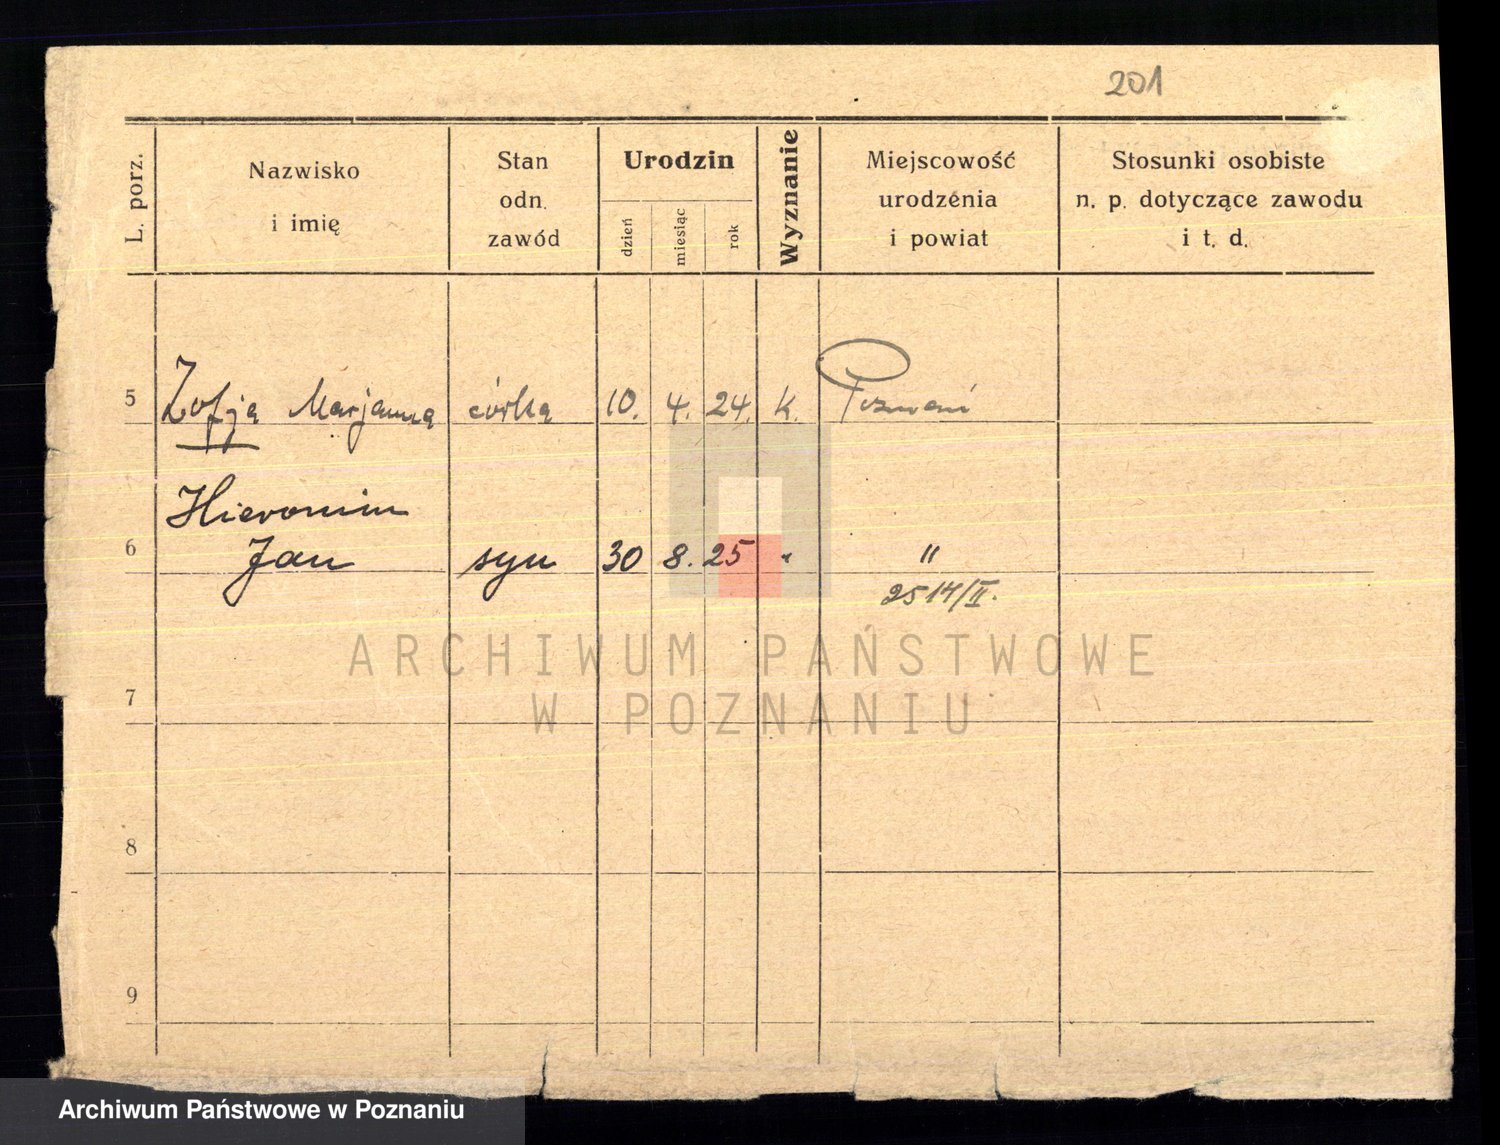 201
L. porz.
Nazwisko
i imię
Stan
odn.
zawód
Urodzin
dzień
miesiąc
rok
Wyznanie
Miejscowość
urodzenia
i powiat
Stosunki osobiste
n. p. dotyczące zawodu
i t. d.
5 Zofja Marjanna córka 10. 4. 24. k. Poznań
Hieronim
6 Jan syn 30 8. 25 " "
2514/II.
ARCHIWUM PAŃSTWOWE
W POZNANIU
7
8
9
Archiwum Państwowe w Poznaniu